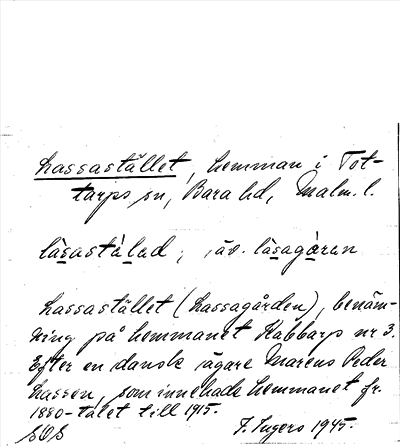 Lassastället, hemman i Tot-
tarps sn, Bara hd, Malm. l.
làsastálad ; äv. làsagàren
Lassastället (Lassagården), benäm-
ning på hemmanet Kabbarp nr 3.
Efter en dansk ägare Marcus Peder
Lassen, som innehade hemmanet fr.
1880-talet till 1915.
J. Ingers 1945.